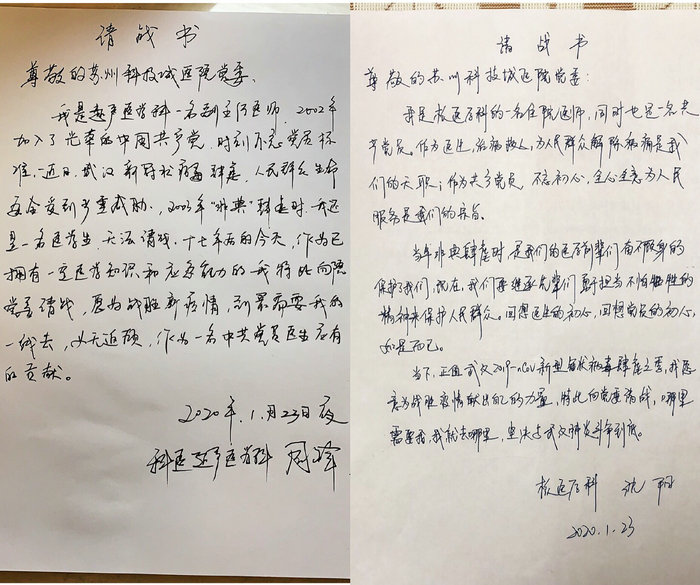 请战书
尊敬的苏州科技城医院党委:
我是超声医学科一名副主任医师,2002年
加入了光荣的中国共产党,时刻不忘党员标
准。近日,武汉新冠状病毒肆虐,人民群众生命
安全受到严重威胁,2003年“非典”肆虐时,我还
是一名医学生无法请战,十七年后的今天,作为已
拥有一定医学知识和应急能力的我特此向院
党委请战,愿为战胜新疫情,到最需要我的
一线去,义无返顾,作为一名中共党员医生应有
的贡献。
2020年.1月23日夜
科医超声医学科 周锋
请战书
尊敬的苏州科技城医院党委:
我是核医学科的一名住院医师,同时也是一名共
产党员。作为医生,治病救人,为人民群众解除病痛是我
们的天职;作为共产党员,不忘初心,全心全意为人民
服务是我们的宗旨。
当年非典肆虐时,是我们的医学前辈们奋不顾身的
保护了我们,现在,我们要继承先辈们勇于担当不怕牺牲的
精神来保护人民群众。回想医生的初心,回想党员的初心,
如是而已。
当下,正值武汉2019-nCoV新型冠状病毒肆虐之季,我愿
意为战胜疫情献出自己的力量,特此向党委请战,哪里
需要我,我就去哪里,坚决与武汉肺炎斗争到底。
核医学科 沈
2020.1.23